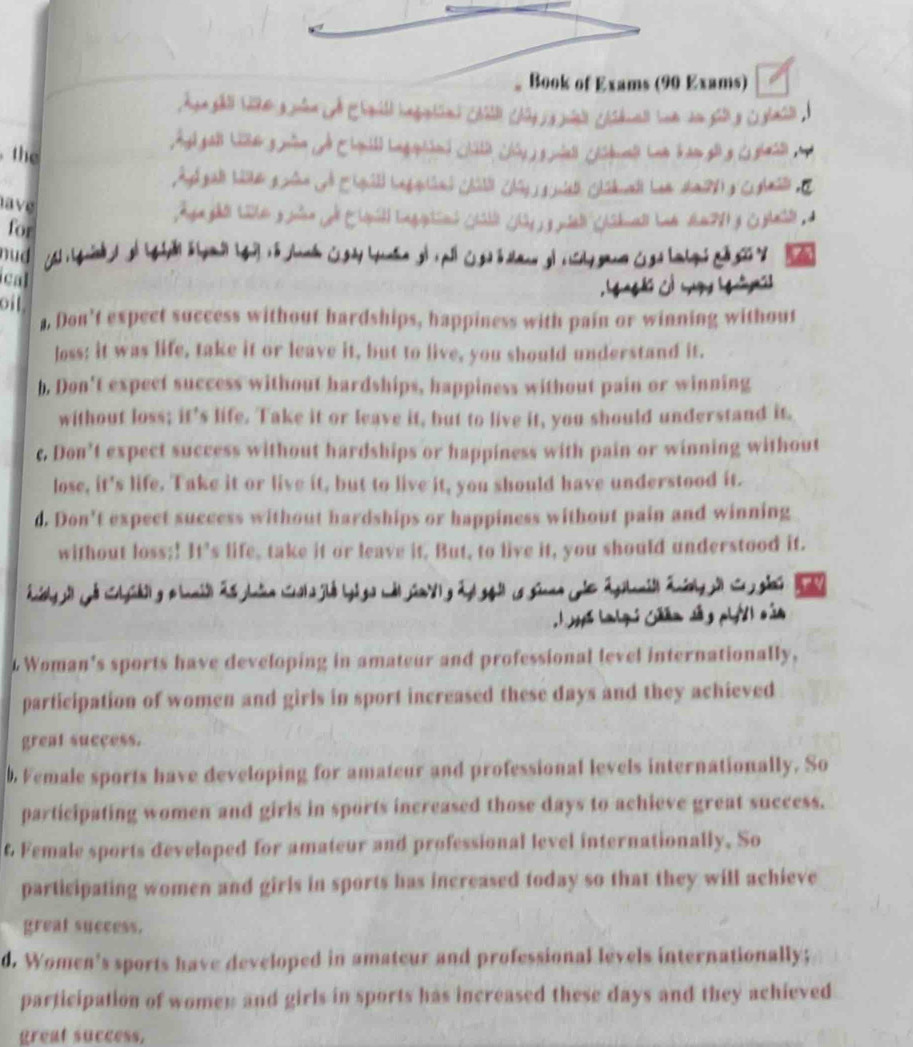 Book of Exams (90 Exams)
the
have
for
ical
oil.
٣٦ لا تتوقع نجاحا دون صعوبات، أو سعادة دون ألم، أو مكسبا بدون خسارة، إنها الحياة اقبلها أو ارفضها، لكن
لتعيشها يجب أن تفهمها.
a. Don't expect success without hardships, happiness with pain or winning without
loss; it was life, take it or leave it, but to live, you should understand it.
b. Don't expect success without hardships, happiness without pain or winning
without loss; it's life. Take it or leave it, but to live it, you should understand it.
c. Don't expect success without hardships or happiness with pain or winning without
lose, it's life. Take it or live it, but to live it, you should have understood it.
d. Don't expect success without hardships or happiness without pain and winning
without loss;! It's life, take it or leave it. But, to live it, you should understood it.
٣٧ تطورت الرياضة النسائية على مستوى الهواية والاحتراف دوليا فازدادت مشاركة النساء والفتيات في الرياضة
هذه الأيام وقد حققن نجاحا كبيرا.
Woman's sports have developing in amateur and professional level internationally,
participation of women and girls in sport increased these days and they achieved
great success.
b. Female sports have developing for amateur and professional levels internationally. So
participating women and girls in sports increased those days to achieve great success.
c. Female sports developed for amateur and professional level internationally, So
participating women and girls in sports has increased today so that they will achieve
great success.
d. Women's sports have developed in amateur and professional levels internationally;
participation of women and girls in sports has increased these days and they achieved
great success,